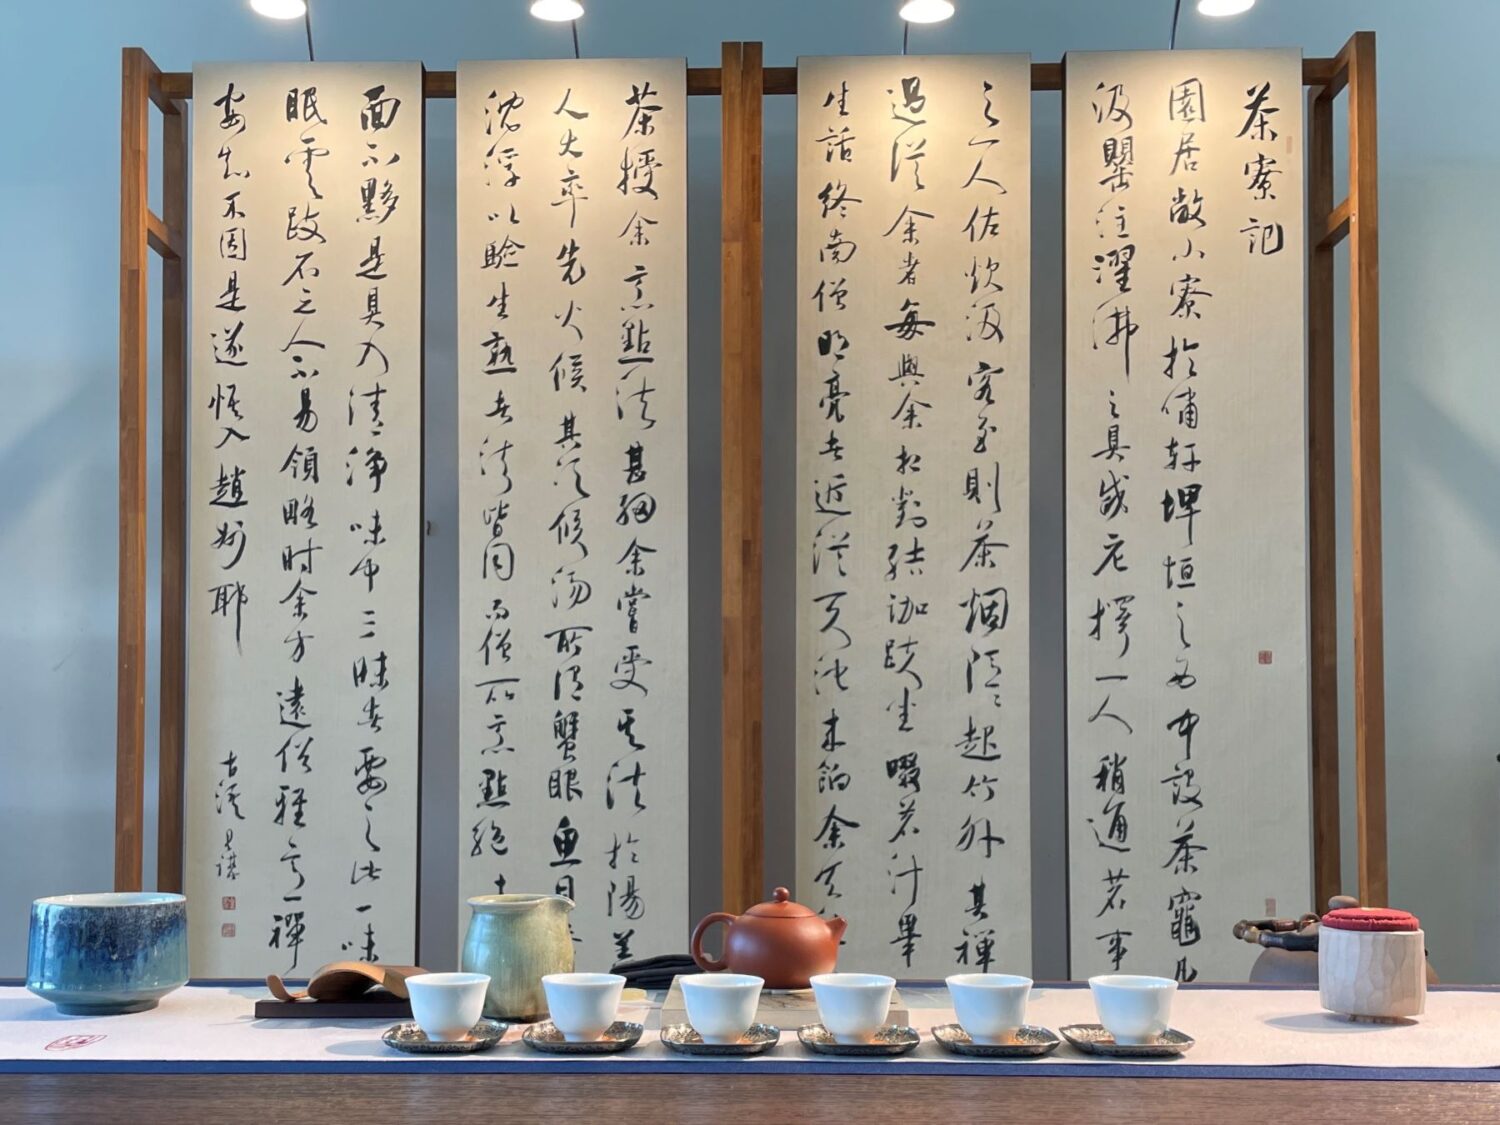 茶寮記
園居敞小寮於嘯軒埤垣之西中設茶竈凡
汲罌注濯拂之具咸庀擇一人稍通茗事
之一人佐炊汲客至則茶烟隱々起竹外其禪
過從余者每與余相對結跏趺坐啜茗汁舉
生話終南僧明亮者近從天池來餉余天
茶授余烹點法甚細余嘗受其法於陽羨
人大率先火候其次候湯所謂蟹眼魚目
沈浮以驗生熟者法皆同而僧所烹點絕
面不黟是具入清淨味中三昧者要之此一味
眠雲跂石之人不易領略时余方遠俗雅意禪
安知不因是遂悟入趙州耶